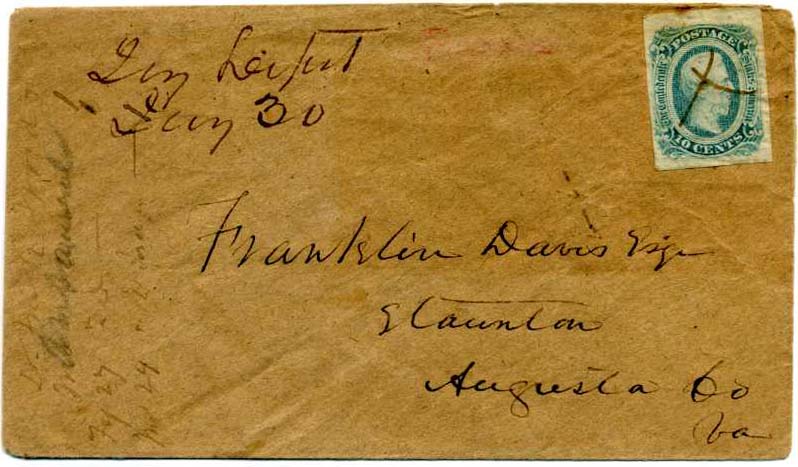 Ivy Depot
Jany 30
POSTAGE
The Confederate States of America
10 CENTS
Franklin Davis Esqr
Staunton
Augusta Co
Va
Answered
27
29